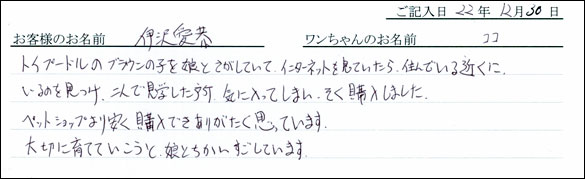 ご記入日 22年 12月 30日
お客様のお名前 伊沢愛恭 ワンちゃんのお名前 ココ
トイプードルのブラウンの子を娘とさがしていて、インターネットを見ていたら、住んでいる近くに、
いるのを見つけ、二人で見学した所、気に入ってしまい、そく購入しました。
ペットショップより安く購入できありがたく思っています。
大切に育てていこうと、娘とちかいすごしています。